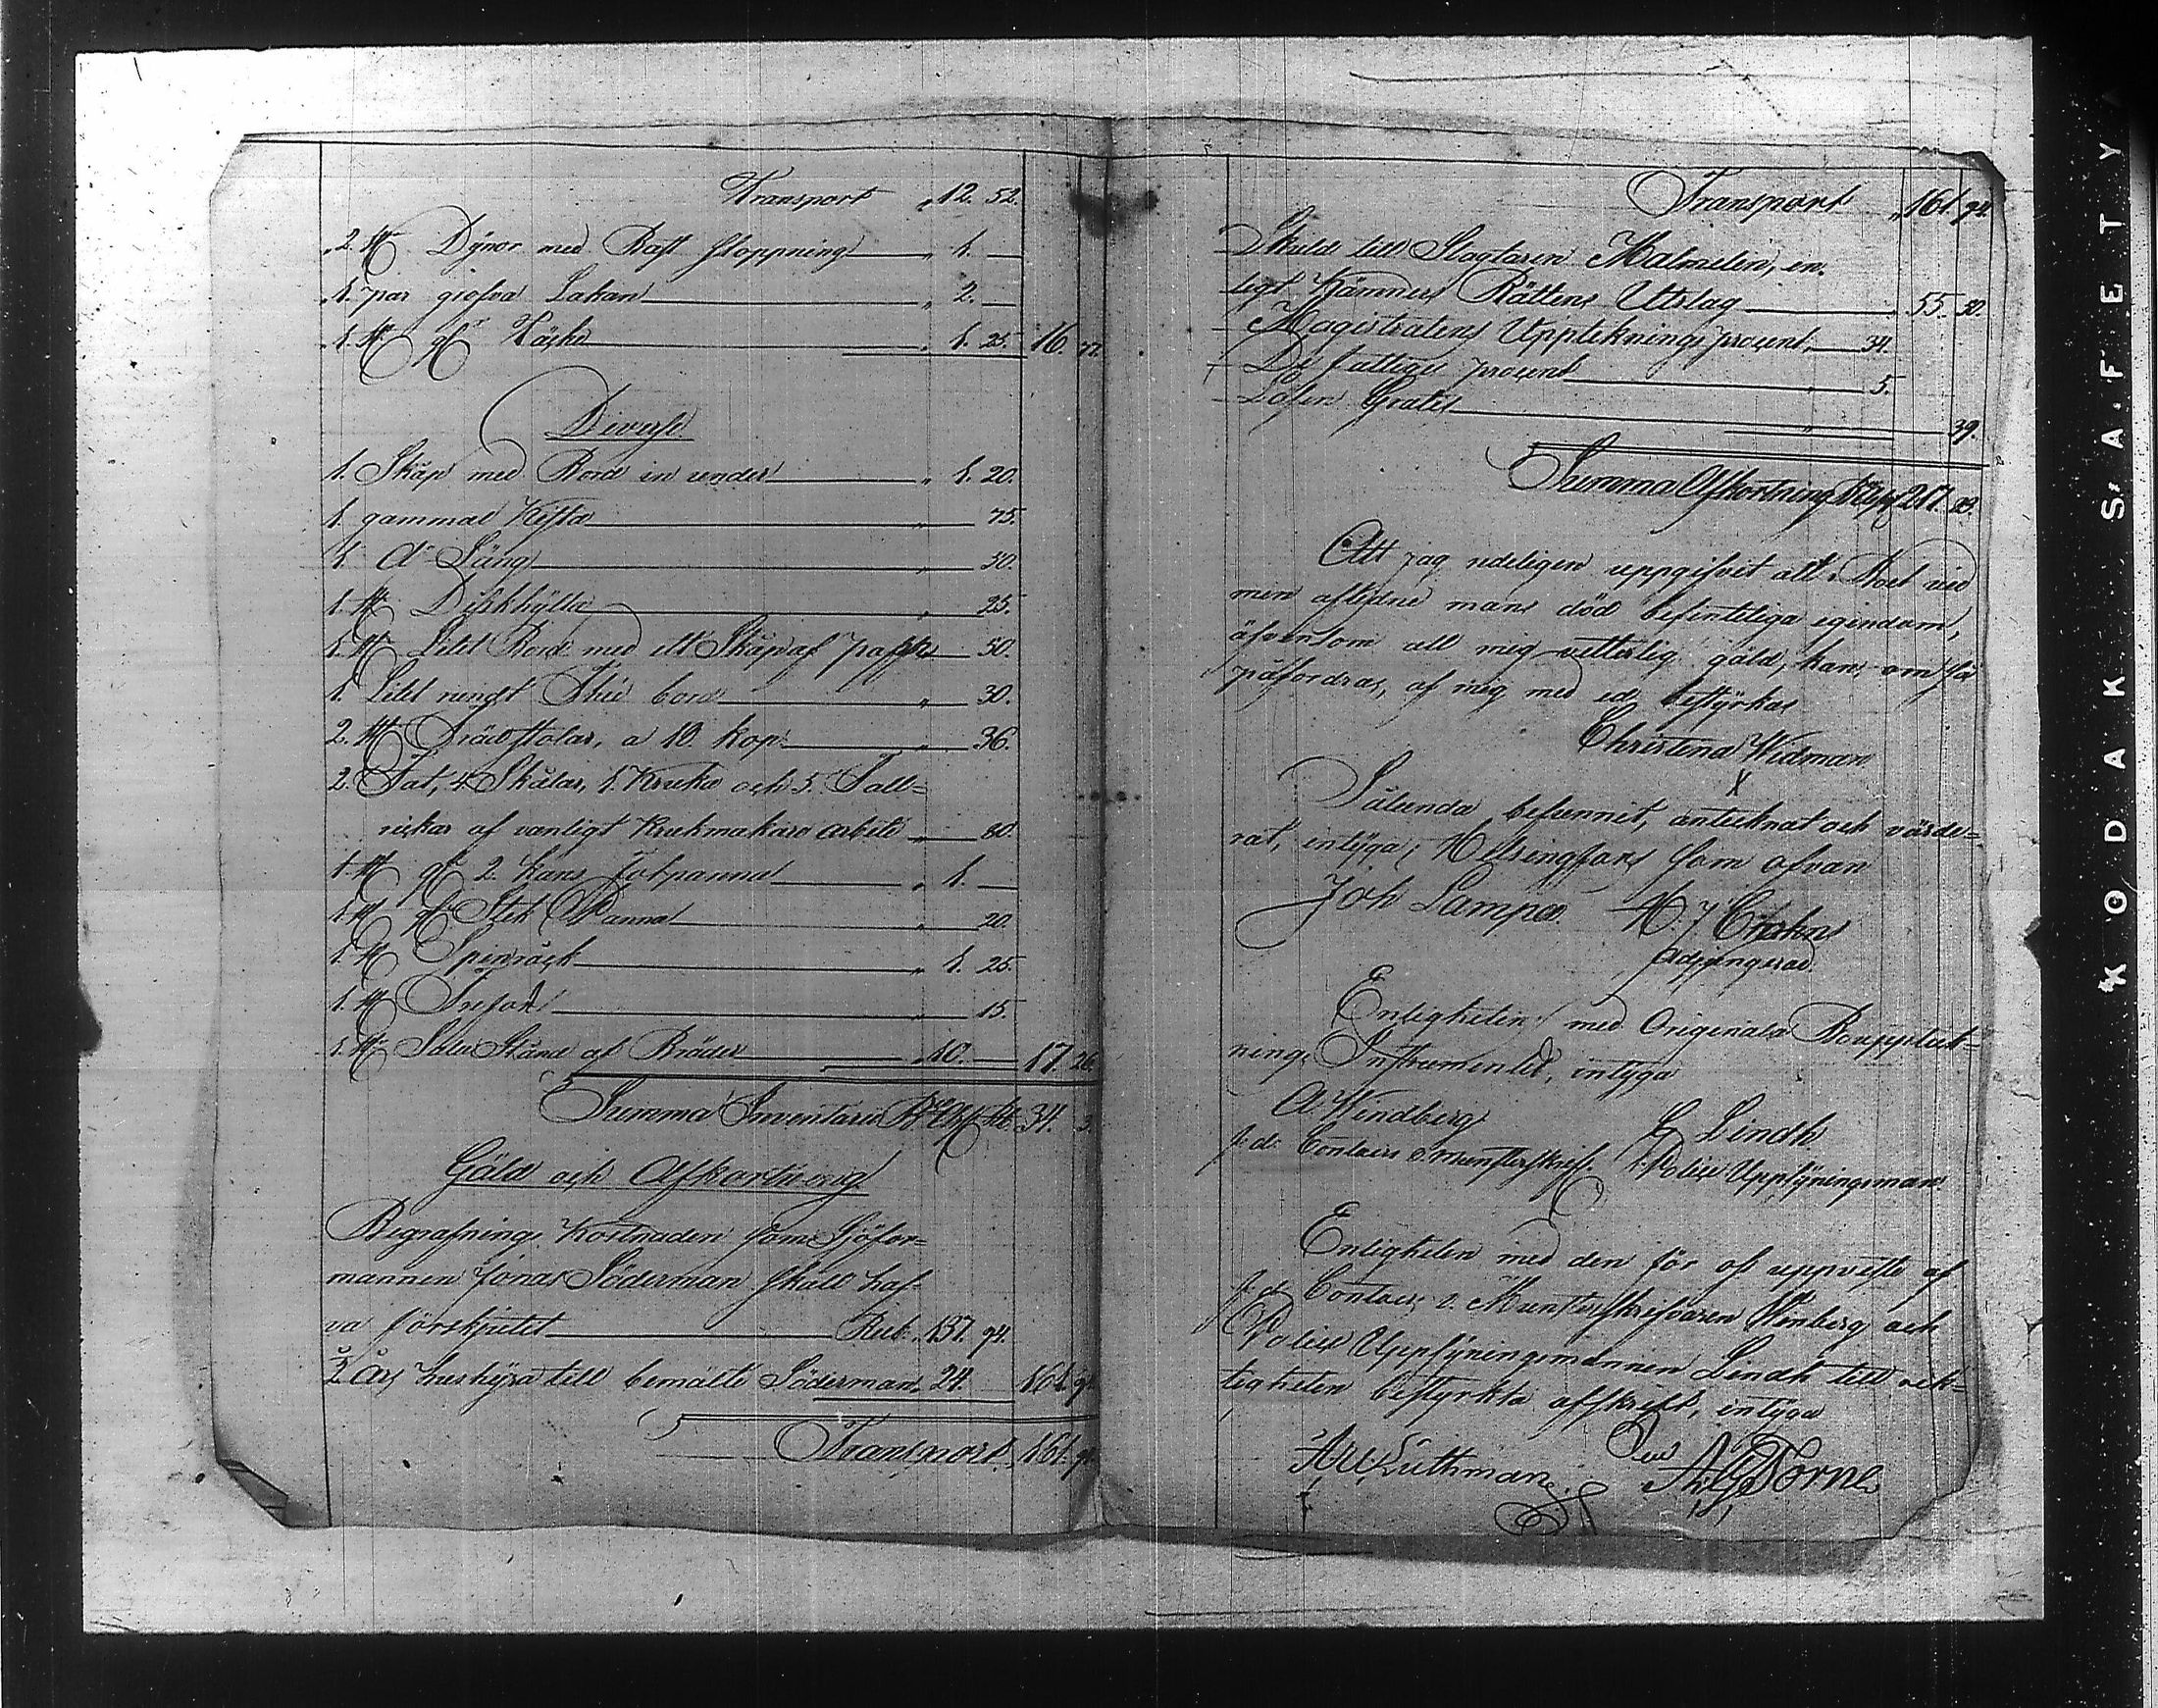 Transport „ 12. 52.
„ 2. st Dÿnor med Bast stoppning „ 1. —
„ 1. par grofva Lakan „ 2. —
„ 1. st Täcke „ 1. 25. 16. 77.
Diverse
1. Skåp med Bord in under „ 1. 20.
1. gammal Kista „ 75.
1. d:o Säng „ 30.
1. st Diskhÿlla „ 25.
1. st Litet Bord med ett Skåp af papp „ 50.
1. Litet rundt Thé bord „ 30.
2. st Stolar, a 10. kop „ 36.
2. Fat, 4. Skålar, 1. Kruka och 5. Tall=
rickar af vanligt Krukmakare arbete „ 80.
1. st 2. Kans panna „ 1. —
1. st Stek Panna „ 20.
1. st Spinråck „ 1. 25.
1. st Trefot „ 15.
1. st Salu Stånd af Bräder „ 10. — 17. 26.
Summa Inventarium 34. 3.
Gäld och Afkortning
Begrafnings Kostnaden som Sjöfor=
mannen Jonas Söderman skall haf-
va förskjutit Rub. 137. 94.
½ Års hushÿra till bemälte Söderman „ 24. — 161. 94.
Transport „ 161. 94.
Transport „ 161. 94.
Skuld till Slagtaren Malmelin, en-
ligt Kämners Rättens Utslag 55. 50.
Magistratens Uppteknings procent „ 34.
De fattiges procent „ 5.
Lösen Gratis
„ 39.
Summa Afkortning 217.
Att jag redeligen uppgifvit all i Boet vid
min aflidne mans död befintliga egendom,
äfvensom all mig vetterlig gäld, kan, om så
påfordras, af mig med ed bestÿrkas
Christina Widman
X
Sålunda befunnit, antecknat och värde=
rat, intÿga; Helsingfors som ofvan
Joh Lampa
adjungerad.
Enligheten med Originala Bouppteck=
nings Instrumentet, intÿga
A Windberg L Lindh
Police Uppsÿningsman.
Enligheten med den för oss uppviste af
Contoirs v. Munsterskrifvaren Winberg och
Police Uppsÿningsmannen Lindh till rik=
tigheten bestÿrkta afskrift, intÿga
Luthman Torne
KODAK SAFETY